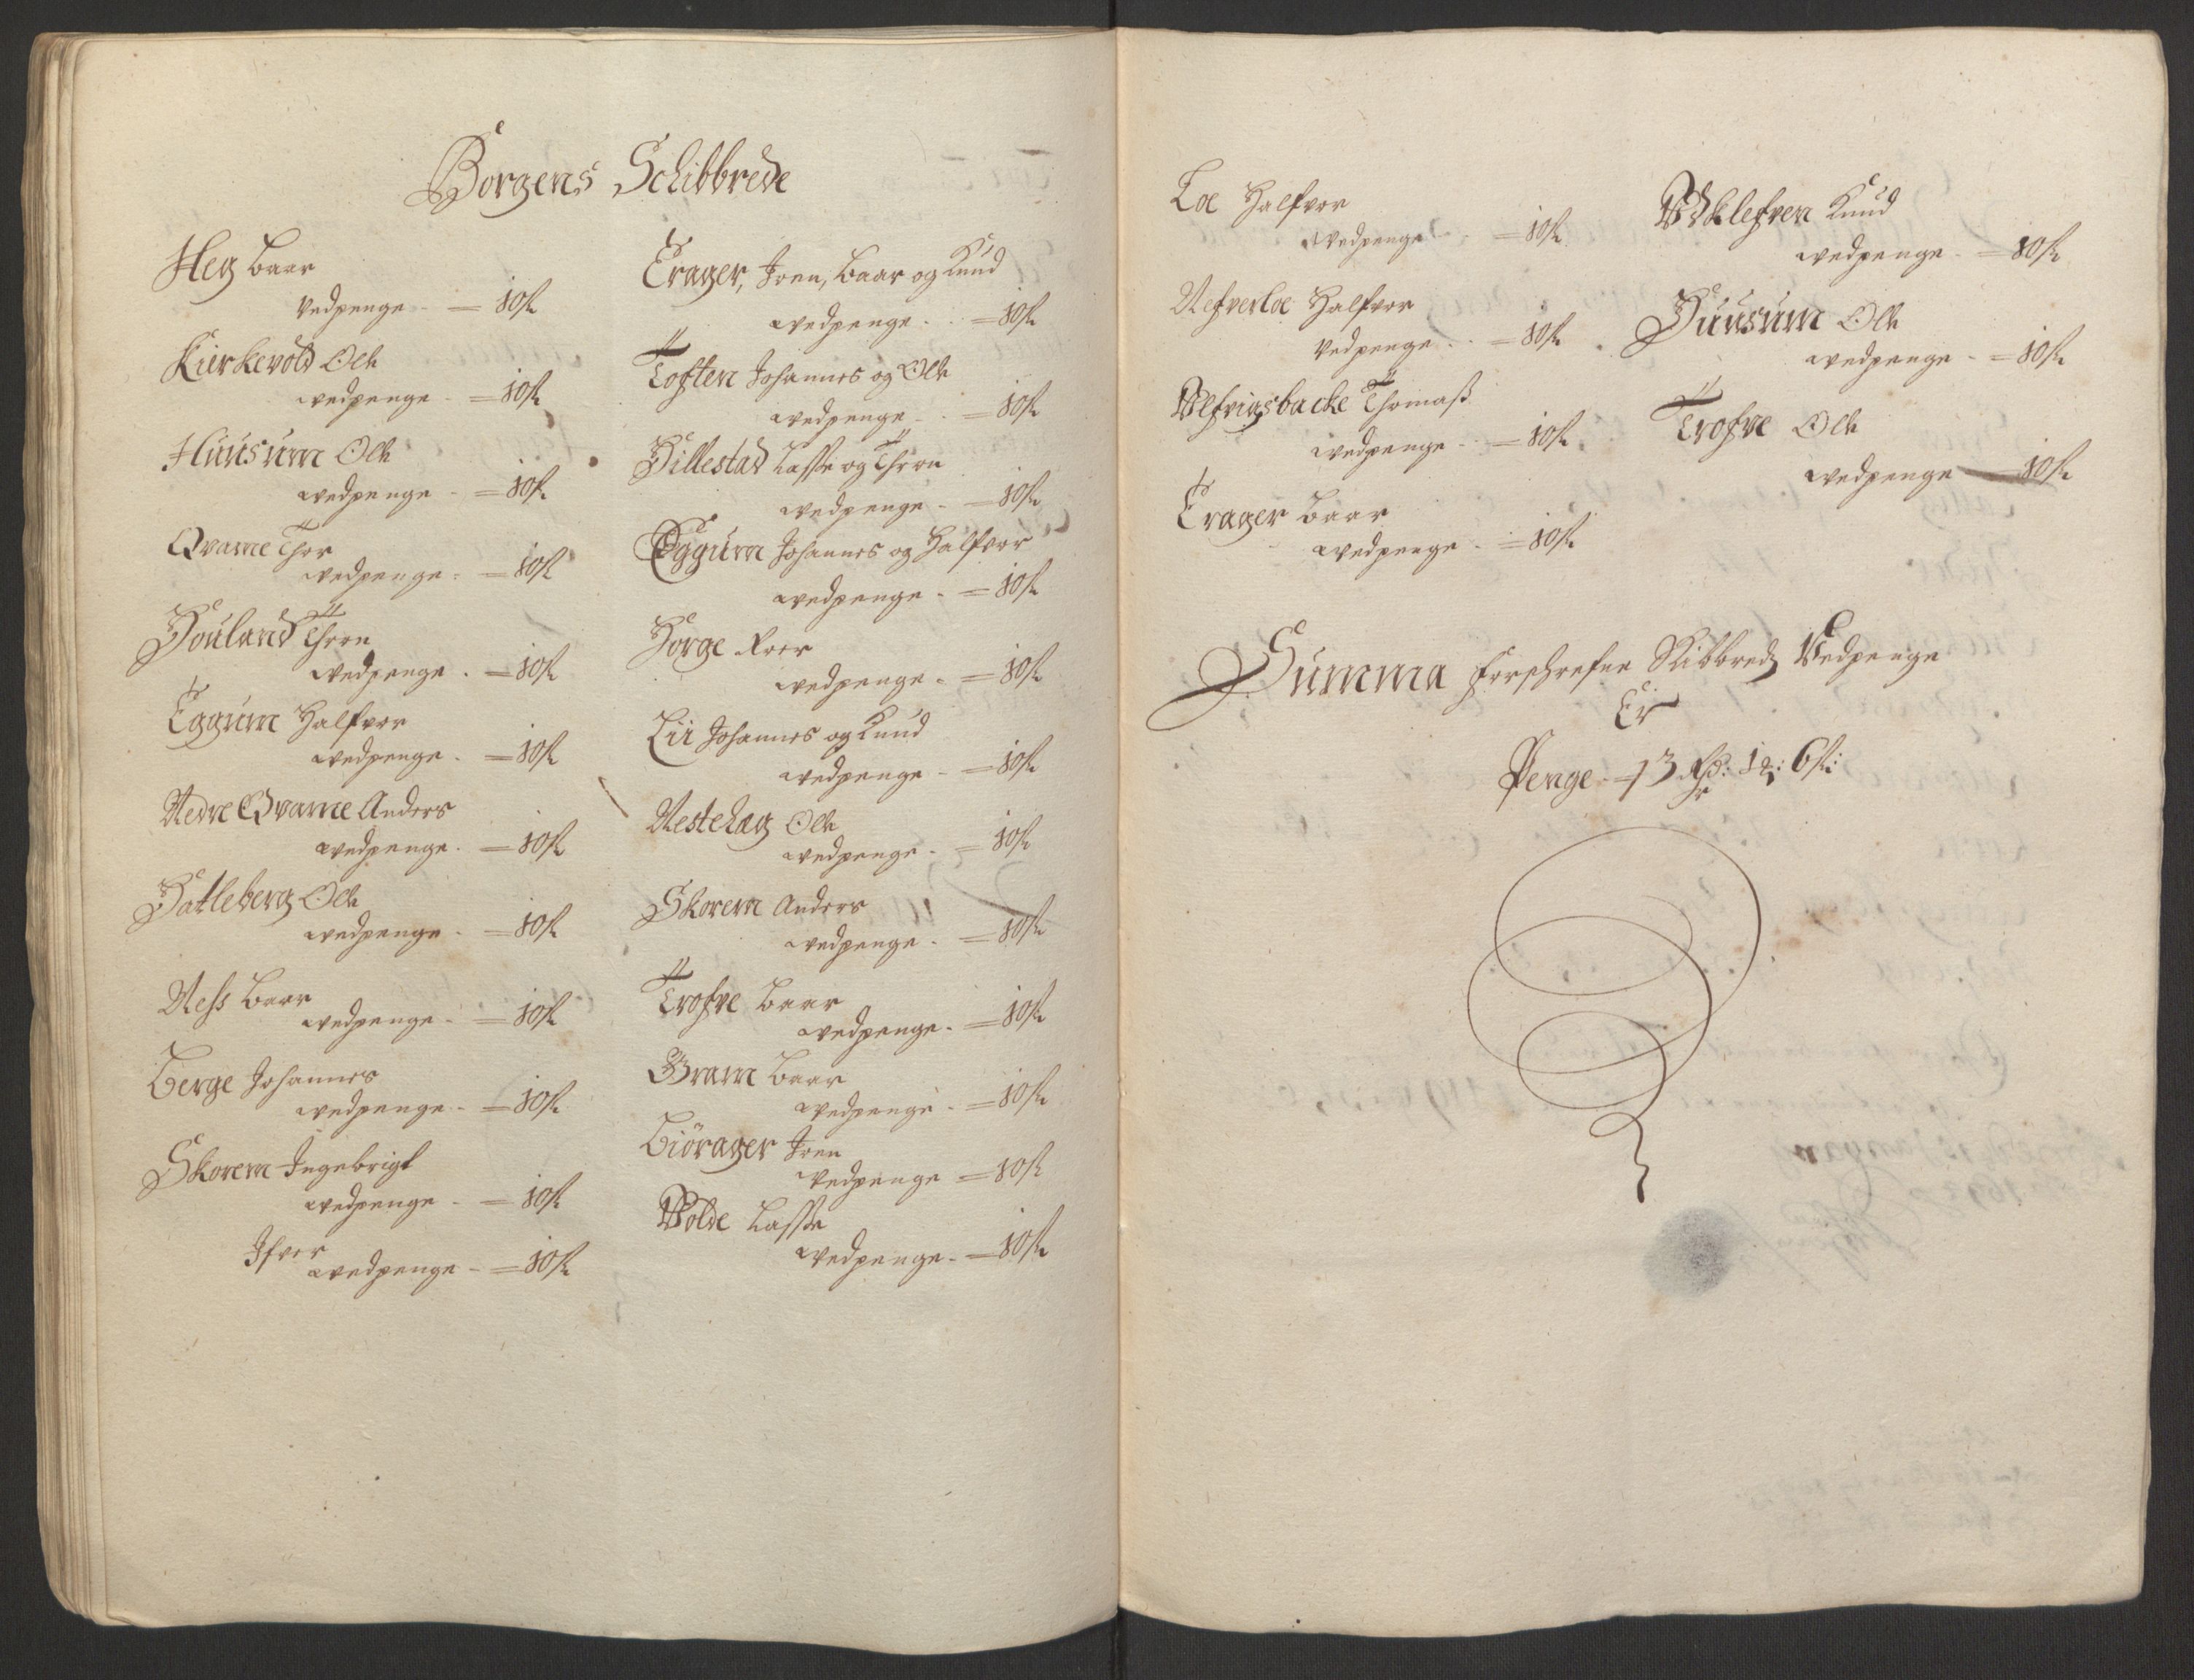 Borgens Schibbrede
Heg Baar
Vedpenge - = 10 ß
Kierkevold Ole
wedpenge - = 10 ß
Huusum Ole
wedpenge - = 10 ß
Qvame Thor
wedpenge - = 10 ß
Houland Thron
wedpenge - = 10 ß
Eggum Halfvor
wedpenge - = 10 ß
Nedre Qvame Anders
wedpenge - = 10 ß
Hatleberg Ole
wedpenge - = 10 ß
Ness Baar
wedpenge - = 10 ß
Berge Johannes
wedpenge - = 10 ß
Skorem Ingebrigt
wedpenge - = 10 ß
Ifver
wedpenge - = 10 ß
Erager, Joen, Baar og Knud
wedpenge - = 10 ß
Toften Johannes og Ole
wedpenge - = 10 ß
Hillestad Lasse og Thron
wedpenge - = 10 ß
Eggum Johannes og Halfvor
wedpenge - = 10 ß
Horge Roer
wedpenge - = 10 ß
Lii Johannes og Knud
wedpenge - = 10 ß
Nesteheg Ole
wedpenge - = 10 ß
Skorem Anders
wedpenge - = 10 ß
Trofve Baar
wedpenge - = 10 ß
Gram Baar
wedpenge - = 10 ß
Biörager Joen
Vedpenge = 10 ß
Volde Lasse
wedpenge - = 10 ß
Loe Halfvor
wedpenge - = 10 ß
Nefverloe Halfvor
Vedpenge - = 10 ß
Ulfvigsbacke Thomaß
wedpenge - = 10 ß
Erager Baar
wedpenge - = 10 ß
Udklefven Knud
wedpenge - = 10 ß
Huusum Ole
wedpenge - = 10 ß
Trofve Ole
wedpenge = 10 ß
Summa forschrefne Skibbredz Vedpenge
Er
Penge - = 3 Rdr: 1 ꝑ: 6 ß: